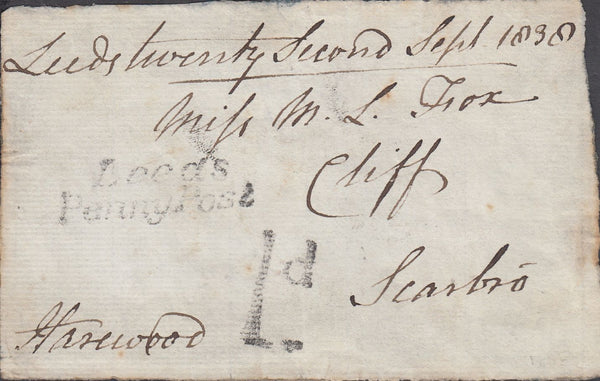 Leeds twenty Second Sept 1838
Miss M. L. Fox
Cliff
Leeds
Penny Post
1d
Scarbro
Harewood